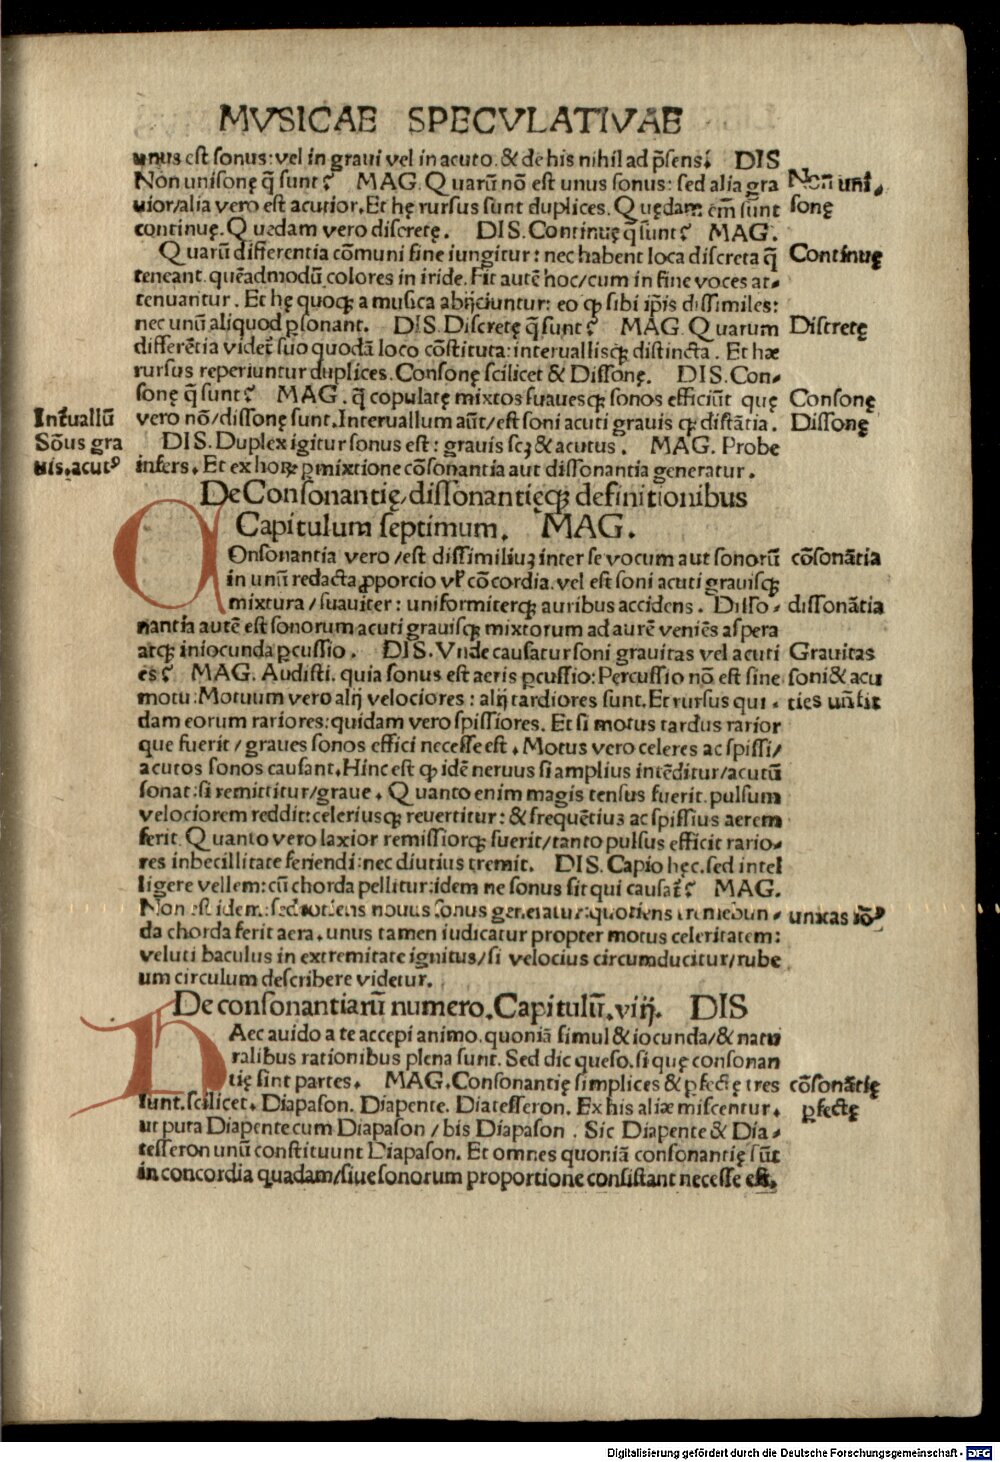 MVSICAE SPECVLATIVAE
unus est sonus: vel in graui vel in acuto. & de his nihil ad p̄sens. DIS
Non unisonę q̄ sunt? MAG. Quarū nō est unus sonus: sed alia gra
Non uni
uior/alia vero est acutior. Et hę rursus sunt duplices. Quędam em̄ sunt
sonę
continuę. Quedam vero discretę. DIS. Continuę q̄ sunt? MAG.
Quarū differentia cōmuni fine iungitur: nec habent loca discreta q̄
Continuę
teneant. quēadmodū colores in iride. Fit autē hoc/cum in fine voces at-
tenuantur. Et hę quoqꝫ a musica abijciuntur: eo ꝙ sibi ip̄is dissimiles:
nec unū aliquod ꝑsonant. DIS. Discretę q̄ sunt? MAG. Quarum
Discretę
differētia videt̄ suo quodā loco cōstituta: interuallisqꝫ distincta. Et hæ
rursus reperiuntur duplices. Consonę scilicet & Dissonę. DIS. Con-
sonę q̄ sunt? MAG. q̄ copulatę mixtos suauesqꝫ sonos efficiūt quę
Consonę
Int̄uallū
vero nō/dissonę sunt. Interuallum aūt/est soni acuti grauis ꝙ distātia.
Dissonę
Sōus gra
DIS. Duplex igitur sonus est: grauis scꝫ & acutus. MAG. Probe
uis. acutꝰ
infers. Et ex hoꝝ ꝑmixtione cōsonantia aut dissonantia generatur.
De Consonantię/dissonantięqꝫ definitionibus
Capitulum septimum. MAG.
COnsonantia vero/est dissimiliuꝫ inter se vocum aut sonorū
cōsonātia
in unū redacta ꝓporcio vl̄ cōcordia. vel est soni acuti grauisqꝫ
mixtura/suauiter: uniformiterqꝫ auribus accidens. Disso-
dissonātia
nantia autē est sonorum acuti grauisqꝫ mixtorum ad aurē veniēs aspera
atqꝫ iniocunda ꝑcussio. DIS. Vnde causatur soni grauitas vel acuti
Grauitas
es? MAG. Audisti. quia sonus est aeris ꝑcussio: Percussio nō est sine
soni & acu
motu: Motuum vero alij velociores: alij tardiores sunt. Et rursus qui-
ties un̄ fit
dam eorum rariores: quidam vero spissiores. Et si motus tardus rarior
que fuerit/graues sonos effici necesse est. Motus vero celeres ac spissi/
acutos sonos causant. Hinc est ꝙ idē neruus si amplius intēditur/acutū
sonat: si remittitur/graue. Quanto enim magis tensus fuerit. pulsum
velociorem reddit: celeriusqꝫ reuertitur: & frequētiuꝫ ac spissius aerem
ferit. Quanto vero laxior remissiorqꝫ fuerit/tanto pulsus efficit rario-
res inbecillitate feriendi: nec diutius tremit. DIS. Capio hęc. sed intel
ligere vellem: cū chorda pellitur: idem ne sonus sit qui causat̄? MAG.
Non est idem: sed totiens nouus sonus generatur: quotiens tremebun-
da chorda ferit aera. unus tamen iudicatur propter motus celeritatem:
veluti baculus in extremitate ignitus/si velocius circumducitur/rube
um circulum describere videtur.
De consonantiarū numero. Capitulū. viij. DIS
HAec auido a te accepi animo. quoniā simul & iocunda/& natu
ralibus rationibus plena sunt. Sed dic queso. si quę consonan
tię sint partes. MAG. Consonantię simplices & ꝑfectę tres
cōsonātię
sunt. scilicet. Diapason. Diapente. Diatesseron. Ex his aliæ miscentur.
ꝑfectę
ut puta Diapente cum Diapason/bis Diapason. Sic Diapente & Dia-
tesseron unū constituunt Diapason. Et omnes quoniā consonantię sūt
in concordia quadam/siue sonorum proportione consistant necesse est.
Digitalisierung gefördert durch die Deutsche Forschungsgemeinschaft - DFG